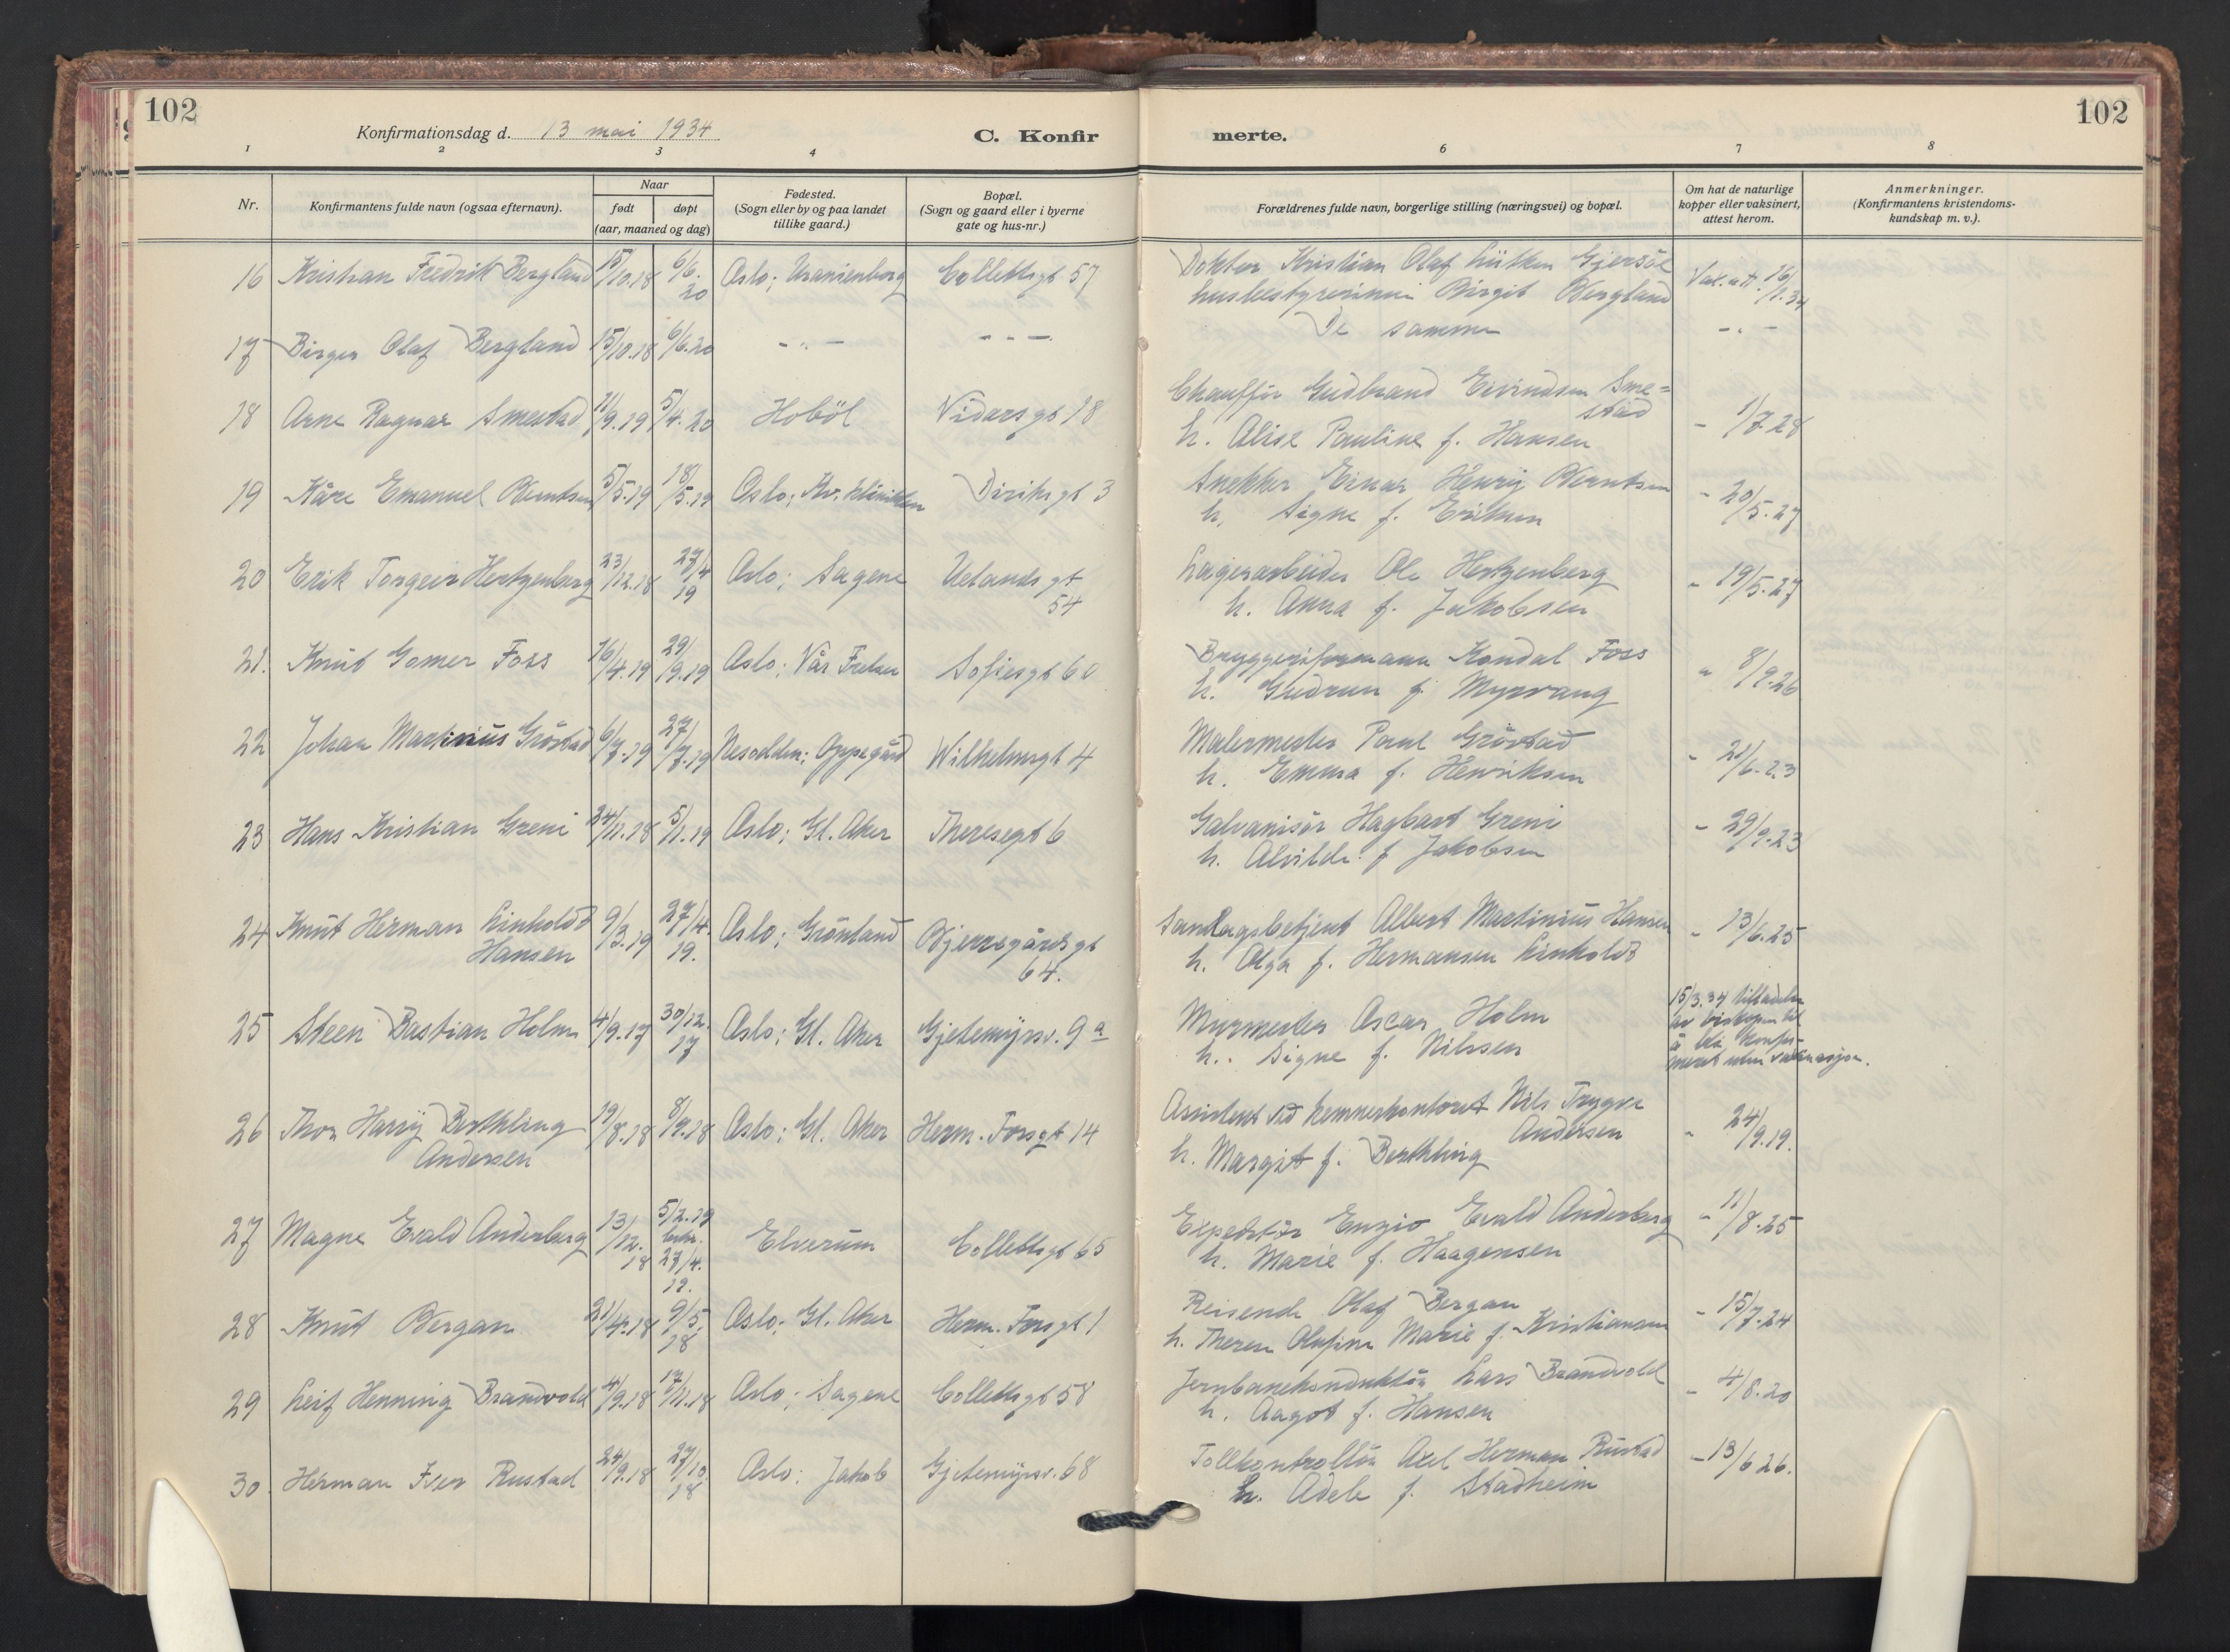 102
Konfirmationsdag d. 13 mai 1934
C. Konfir
merte.
102
1 2 3 4 6 7 8
Nr.
Konfirmantens fulde navn (ogsaa efternavn).
Naar
født døpt
(aar, maaned og dag)
Fødested.
(Sogn eller by og paa landet
tillike gaard.)
Bopæl.
(Sogn og gaard eller i byerne
gate og hus-nr.)
Forældrenes fulde navn, borgerlige stilling (næringsvei) og bopæl.
Om hat de naturlige
kopper eller vaksinert,
attest herom.
Anmerkninger.
(Konfirmantens kristendoms-
kundskap m. v.).
16 Kristian Fredrik Bergland 15/10.18 6/6.20 Oslo; Uranienborg Collettsgt 57
Doktor Kristian Olaf Lütken Gjersöe
husbestyrerinne Birgit Bergland
Vak.att. 16/1.34
17 Birger Olaf Bergland 15/10.18 6/6.20 - " - - " -
De samme - " -
18 Arne Ragnar Smestad 11/9.19 5/4.20 Hobøl Vidarsgt 18
Chauffør Gudbrand Eivindsen Sme=
stad
h. Alise Pauline f. Hansen
- 1/7.28
19 Kåre Emanuel Berntsen 5/5.19 18/5.19 Oslo; Kv. klinikken Diriksgt 3
Snekker Einar Henry Berntsen
h. Signe f. Eriksen
- 20/5.27
20 Erik Torgeir Hertzenberg 23/12.18 27/4 19 Oslo; Sagene Uelandsgt
54
Lagerarbeider Ole Hertzenberg
h. Anna f. Jakobsen
- 19/5.27
21. Knut Gomer Foss 16/4.19 29/9.19 Oslo; Vår Frelser Sofiesgt 60
Bryggeriformann Kondal Foss
h. Gudrun f. Myrvang
" 8/9.26
22 Johan Martinius Gröstad 6/7.19 27/7.19 Nesodden; Oppegård Wilhelmsgt 4
Malermester Paul Gröstad
h. Emma f. Henriksen
- 21/6.23
23 Hans Kristian Greni 24/11.18 5/1.19 Oslo; Gl. Aker Theresegt 6
Galvanisør Hagbart Greni
h. Alvilde f. Jakobsen
- 29/9.23
24 Knut Herman Linholdt
Hansen
9/3.19 27/4.19. Oslo; Grönland Bjerregårdsgt
64.
Samlagsbetjent Albert Martinius Hansen
h. Olga f. Hermansen Linholdt
- 13/6.25
25 Steen Bastian Holm 4/9.17 30/12.17 Oslo; Gl. Aker Gjetemyrsv. 9 a
Murmester Oscar Holm
h. Signe f. Nilssen
15/3.34 tillatelse
av biskopen til
å bli konfir-
mert uten vaksinasjon.
26 Thor Harry Berthling
Andersen
19/8.18 8/9.18 Oslo; Gl. Aker Herm. Fossgt 14
Assistent ved kemnerkontoret Nils Trygve
Andersen
h. Margit f. Berthling
- 24/9.19.
27 Magne Evald Anderberg 13/12.18 5/2.19
27/4.19. Elverum Collettsgt 65
Expeditør Enzio Evald Anderberg
h. Marie f. Haagensen
- 11/8.25
28 Knut Bergan 21/4.18 9/5.18 Oslo; Gl. Aker Herm. Fossgt 1
Reisende Olaf Bergan
h. Therese Olafine Marie f. Kristiansen
- 15/7.24
29 Leif Henning Brandvold 4/9.18 17/11.18 Oslo; Sagene Collettsgt 58
Jernbanekonduktør Lars Brandvold
h. Aagot f. Hansen
- 4/8.20
30 Herman Iver Rustad 24/9.18 27/10.18 Oslo; Jakob Gjetemyrsv. 68
Tollkontrollør Axel Herman Rustad
h. Adele f. Stadheim
- 13/6 26.